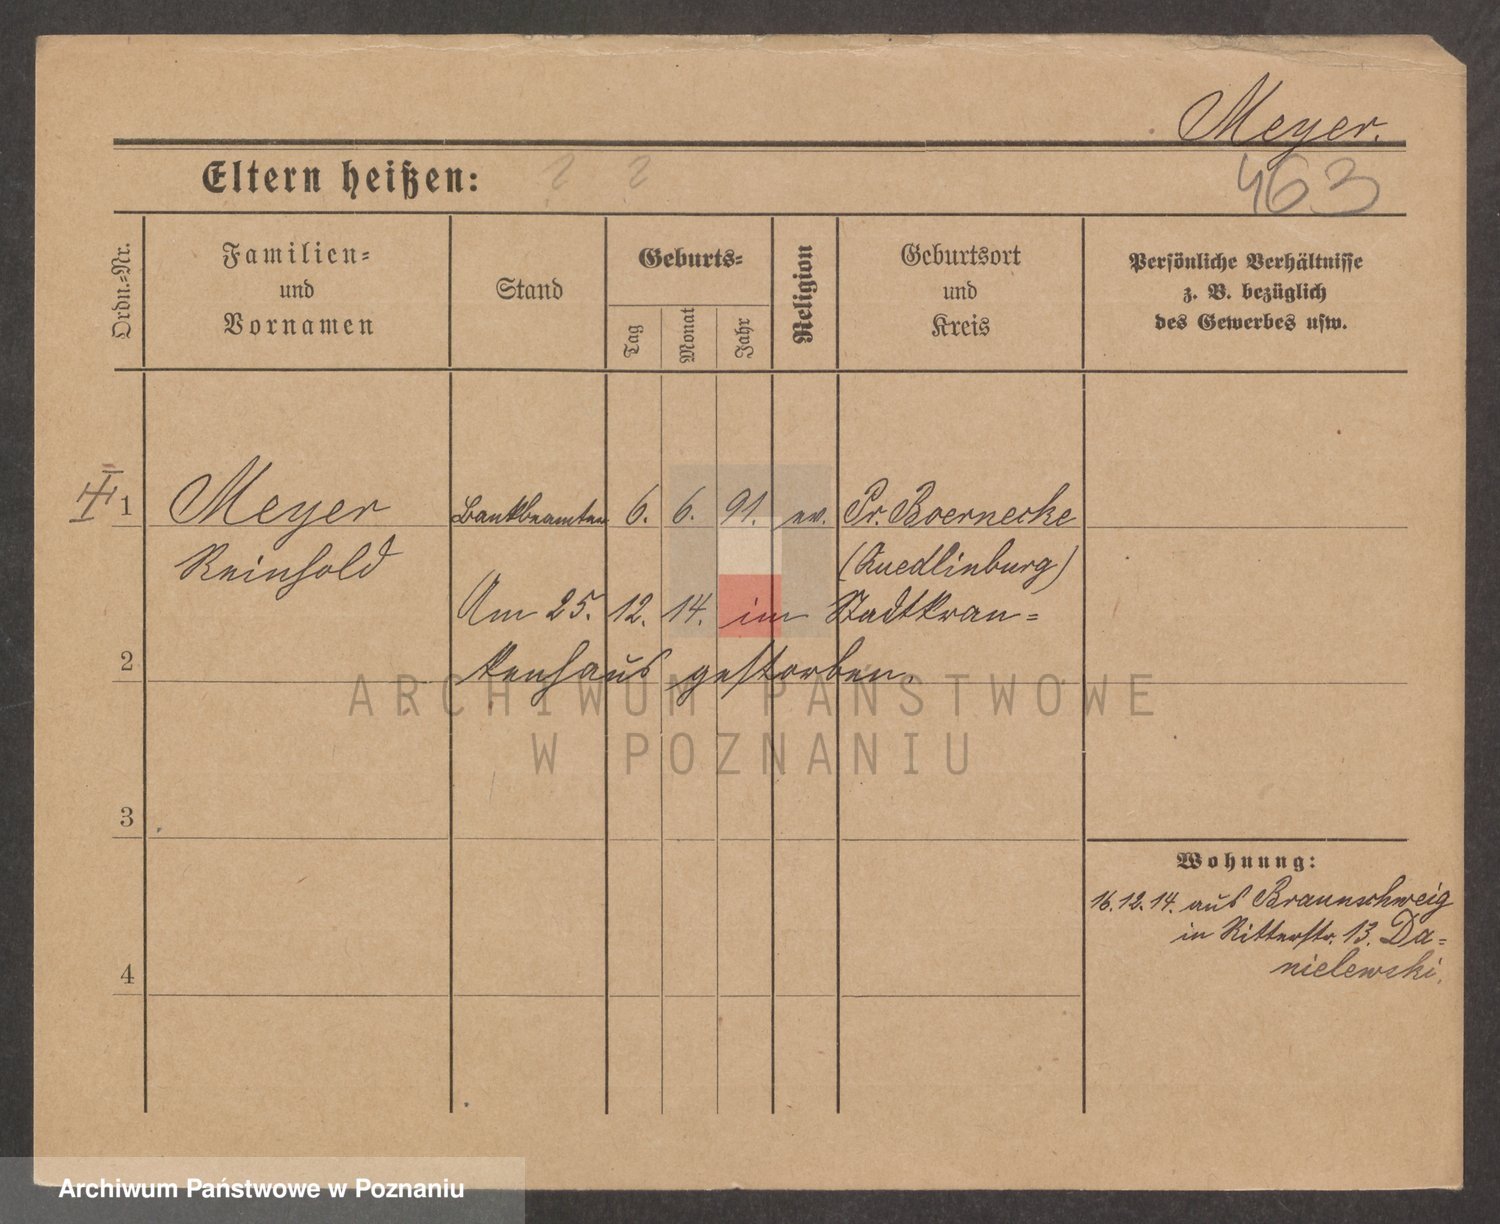 Meyer.
Eltern heißen: ? ?
463
Ordn.=Nr.
Familien=
und
Vornamen
Stand
Geburts=
Tag
Monat
Jahr
Religion
Geburtsort
und
Kreis
Persönliche Verhältnisse
z. B. bezüglich
des Gewerbes usw.
1 Meyer Bankbeamter 6. 6. 91. ev. Pr. Boernecke
Reinhold (Quedlinburg)
Am 25. 12. 14. im Stadtkran=
2 kenhaus gestorben.
ARCHIWUM PAŃSTWOWE
W POZNANIU
3
Wohnung:
16.12.14. aus Braunschweig
in Ritterstr. 13. Da=
nielewski.
4
Archiwum Państwowe w Poznaniu